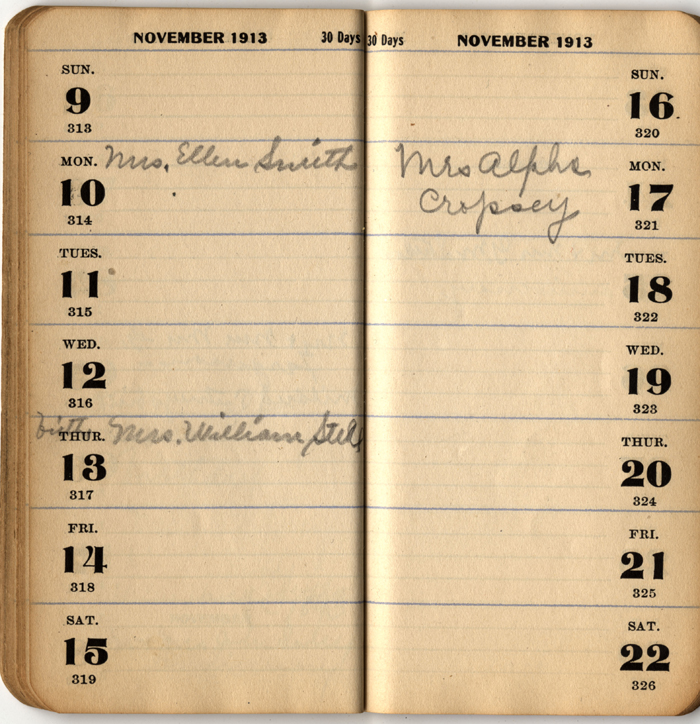 NOVEMBER 1913 30 Days
SUN.
9
313
MON. Mrs. Ellen Smith
10
314
TUES.
11
315
WED.
12
316
birth Mrs. William
THUR.
13
317
FRI.
14
318
SAT.
15
319
30 Days NOVEMBER 1913
SUN.
16
320
Mrs Alpha
MON.
Cropsey
17
321
TUES.
18
322
WED.
19
323
THUR.
20
324
FRI.
21
325
SAT.
22
326